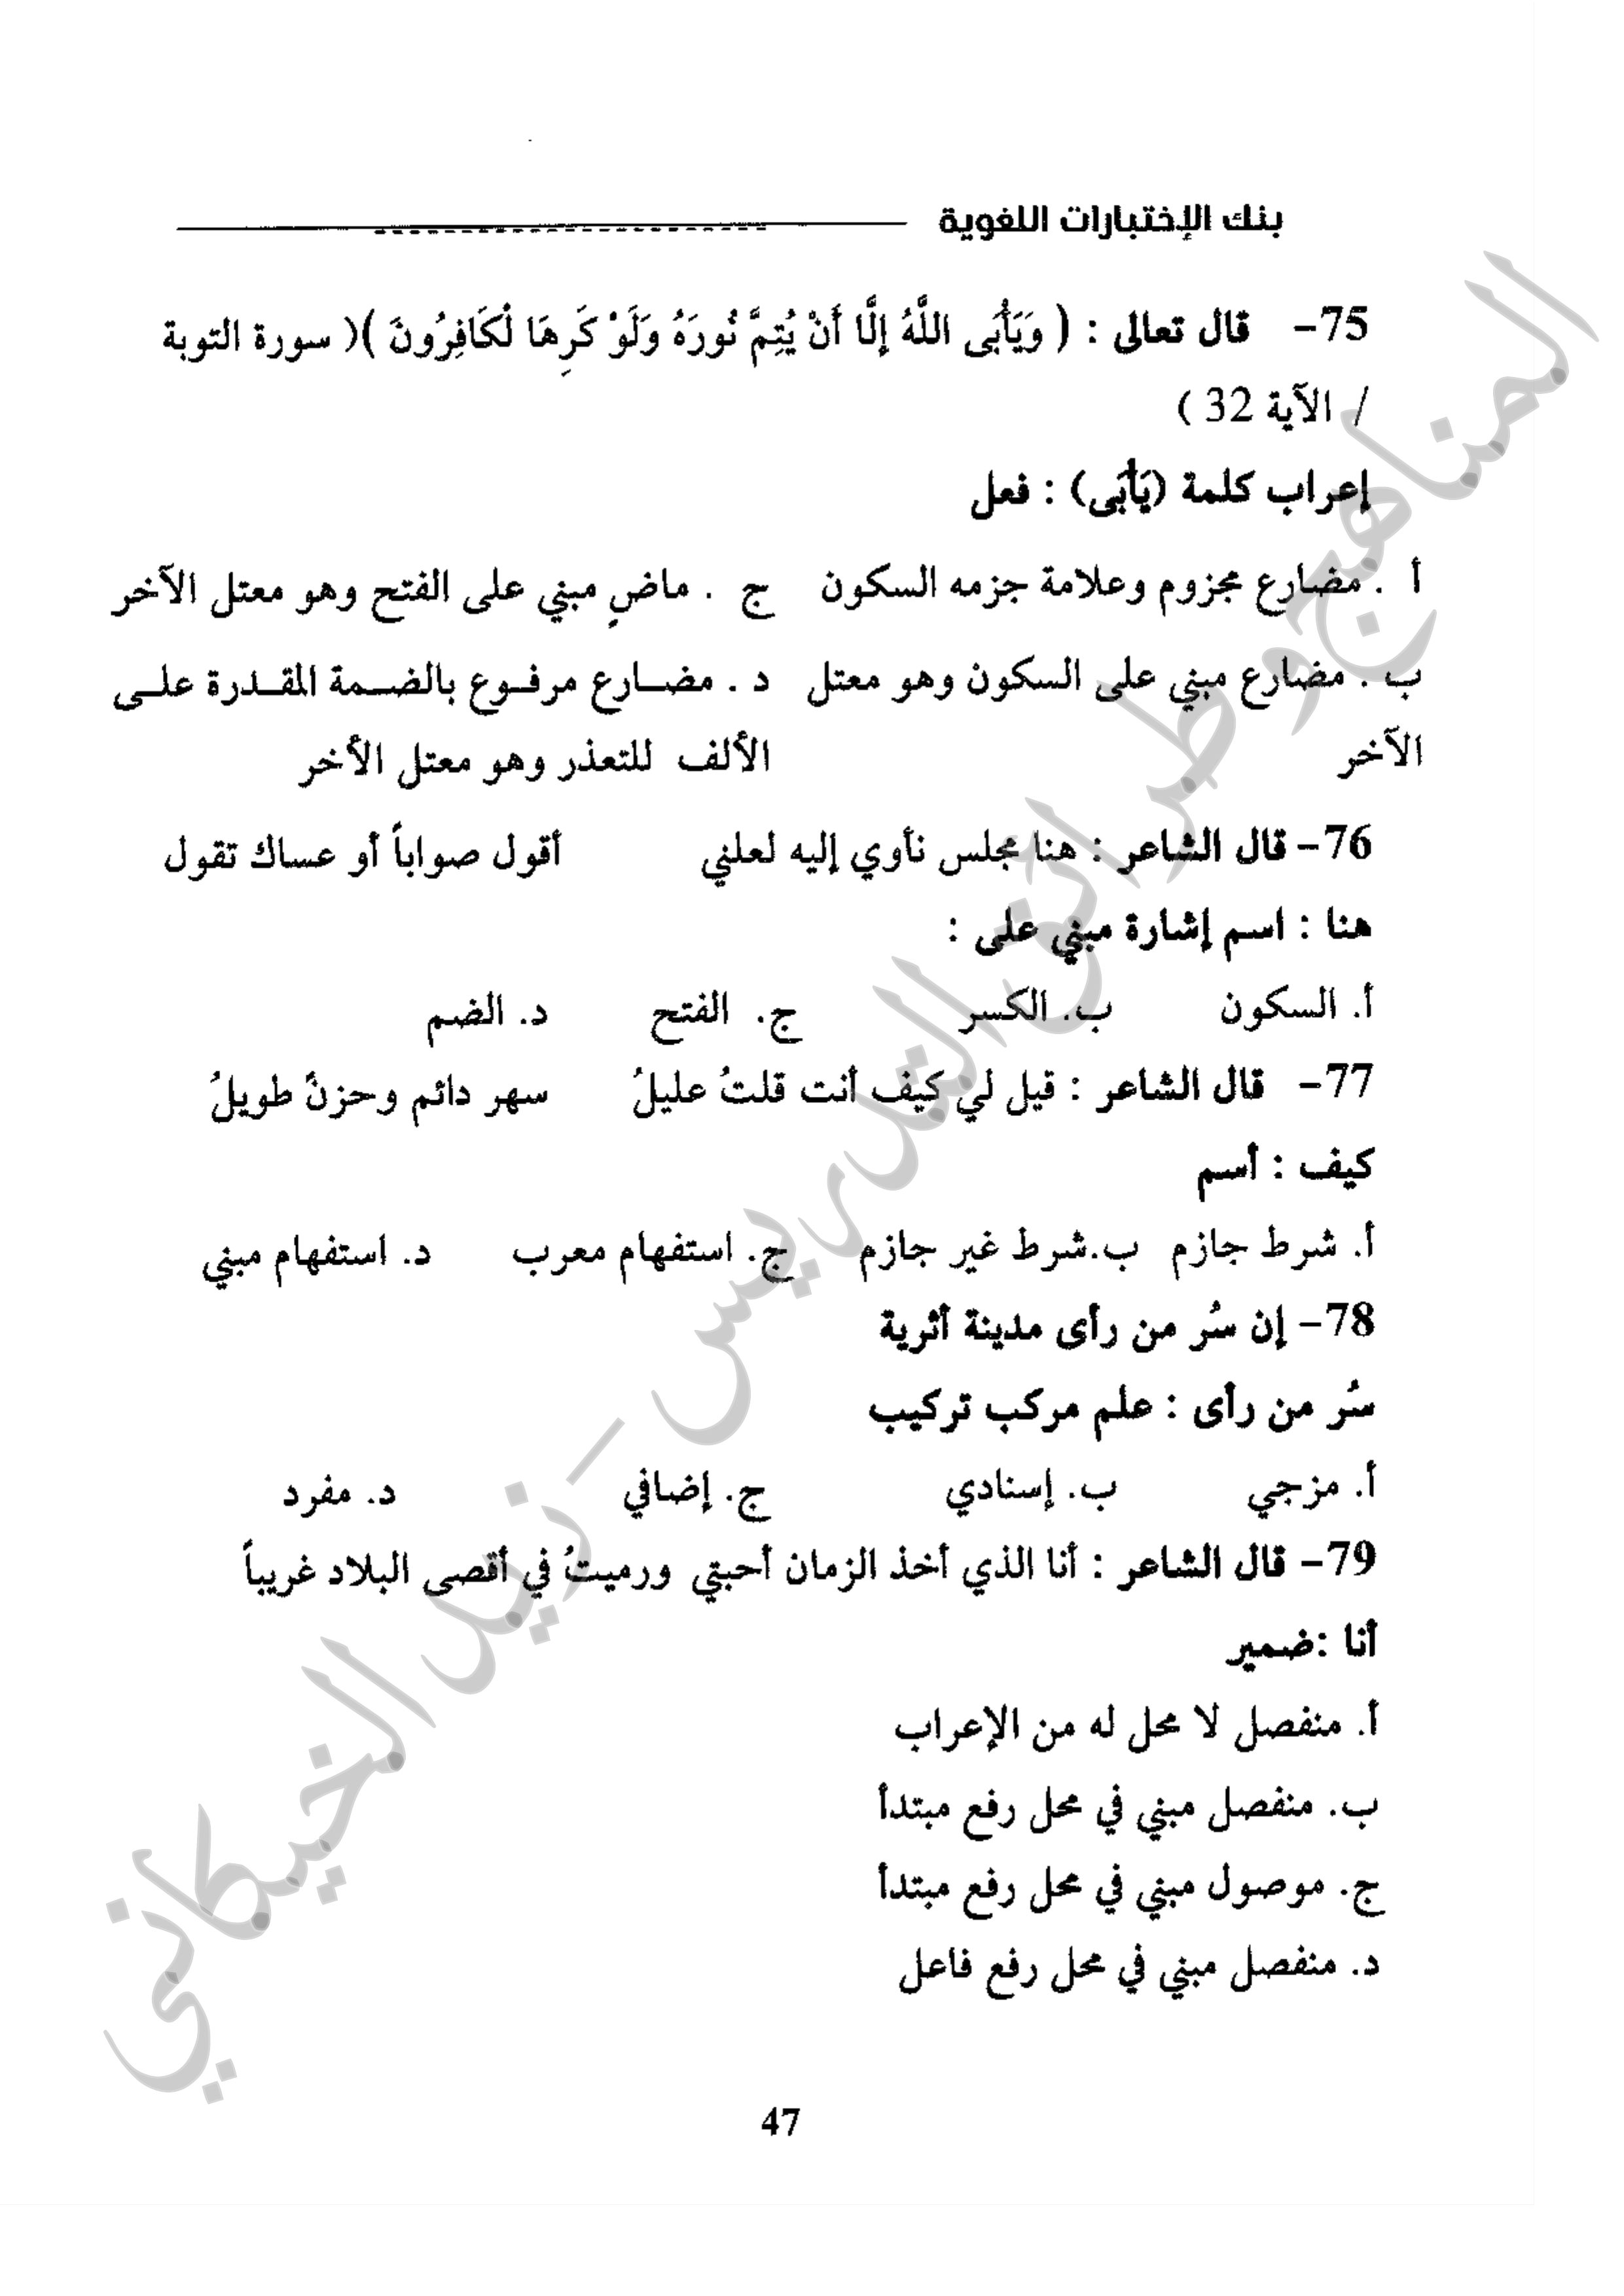 بنك الإختبارات اللغوية
75- قال تعالى : ( وَيَأْبَى اللَّهُ إِلَّا أَنْ يُتِمَّ نُورَهُ وَلَوْ كَرِهَا لْكَافِرُونَ )( سورة التوبة
/ الآية 32 )
إعراب كلمة (يَأْبَى) : فعل
أ . مضارع مجزوم وعلامة جزمه السكون ج . ماضٍ مبني على الفتح وهو معتل الآخر
ب . مضارع مبني على السكون وهو معتل د . مضــارع مرفــوع بالضــمة المقــدرة علــى
الآخر الألف للتعذر وهو معتل الأخر
76- قال الشاعر : هنا مجلس نأوي إليه لعلني أقول صواباً أو عساك تقول
هنا : اسم إشارة مبني على :
أ. السكون ب. الكسر ج. الفتح د. الضم
77- قال الشاعر : قيل لي كيف أنت قلتُ عليلُ سهر دائم وحزنٌ طويلُ
كيف : أسم
أ. شرط جازم ب.شرط غير جازم ج. استفهام معرب د. استفهام مبني
78- إن سُر من رأى مدينة أثرية
سُر من رأى : علم مركب تركيب
أ. مزجي ب. إسنادي ج. إضافي د. مفرد
79- قال الشاعر : أنا الذي أخذ الزمان أحبتي ورميتُ في أقصى البلاد غريباً
أنا :ضمير
أ. منفصل لا محل له من الإعراب
ب. منفصل مبني في محل رفع مبتدأ
ج. موصول مبني في محل رفع مبتدأ
د. منفصل مبني في محل رفع فاعل
47
المناهج وطرائق التدريس - زيد الخيكاني